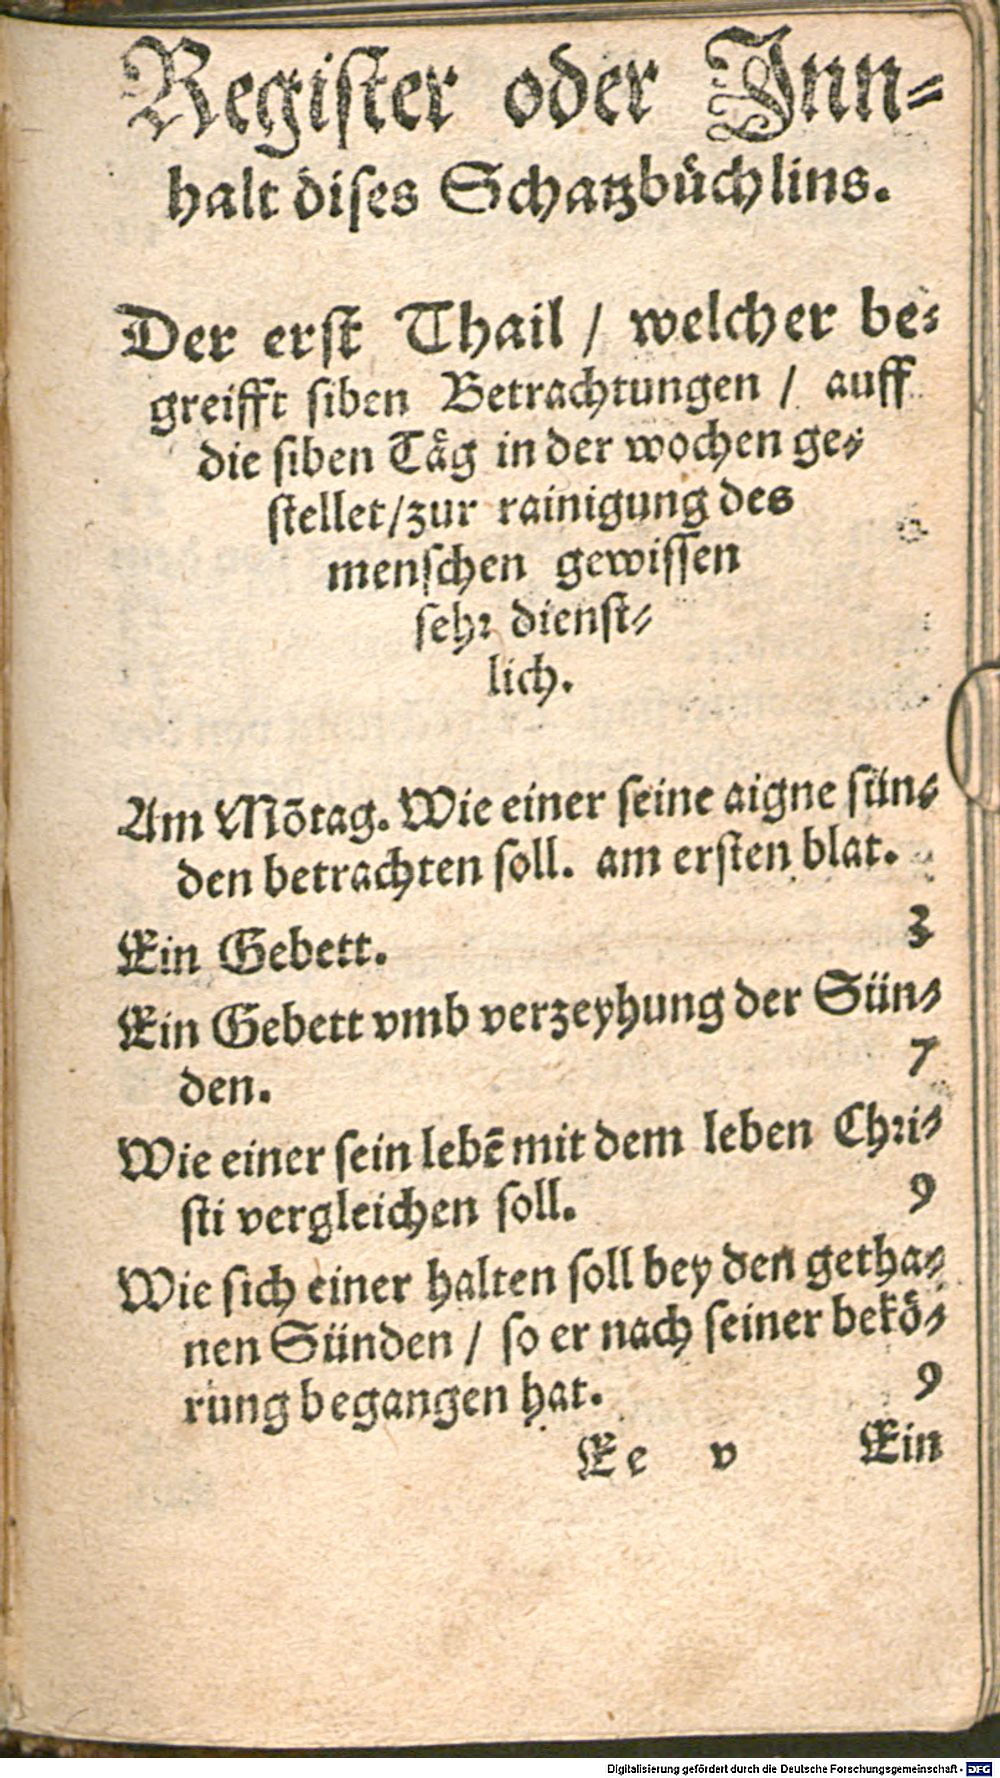 Regiſter oder Inn⸗
halt diſes Schatzbuͤchlins.
Der erſt Thail / welcher be⸗
greifft ſiben Betrachtungen / auff
die ſiben Taͤg in der wochen ge⸗
ſtellet / zur rainigung des
menſchen gewiſſen
ſehꝛ dienſt⸗
lich.
Am Mõtag. Wie einer ſeine aigne ſün⸗
den betrachten ſoll. am erſten blat.
Ein Gebett. 3
Ein Gebett vmb verzeyhung der Sün⸗
den. 7
Wie einer ſein lebẽ mit dem leben Chꝛi⸗
ſti vergleichen ſoll. 9
Wie ſich einer halten ſoll bey den getha⸗
nen Sünden / ſo er nach ſeiner bekoͤ⸗
rung begangen hat. 9
Ee v Ein
Digitalisierung gefördert durch die Deutsche Forschungsgemeinschaft - DFG